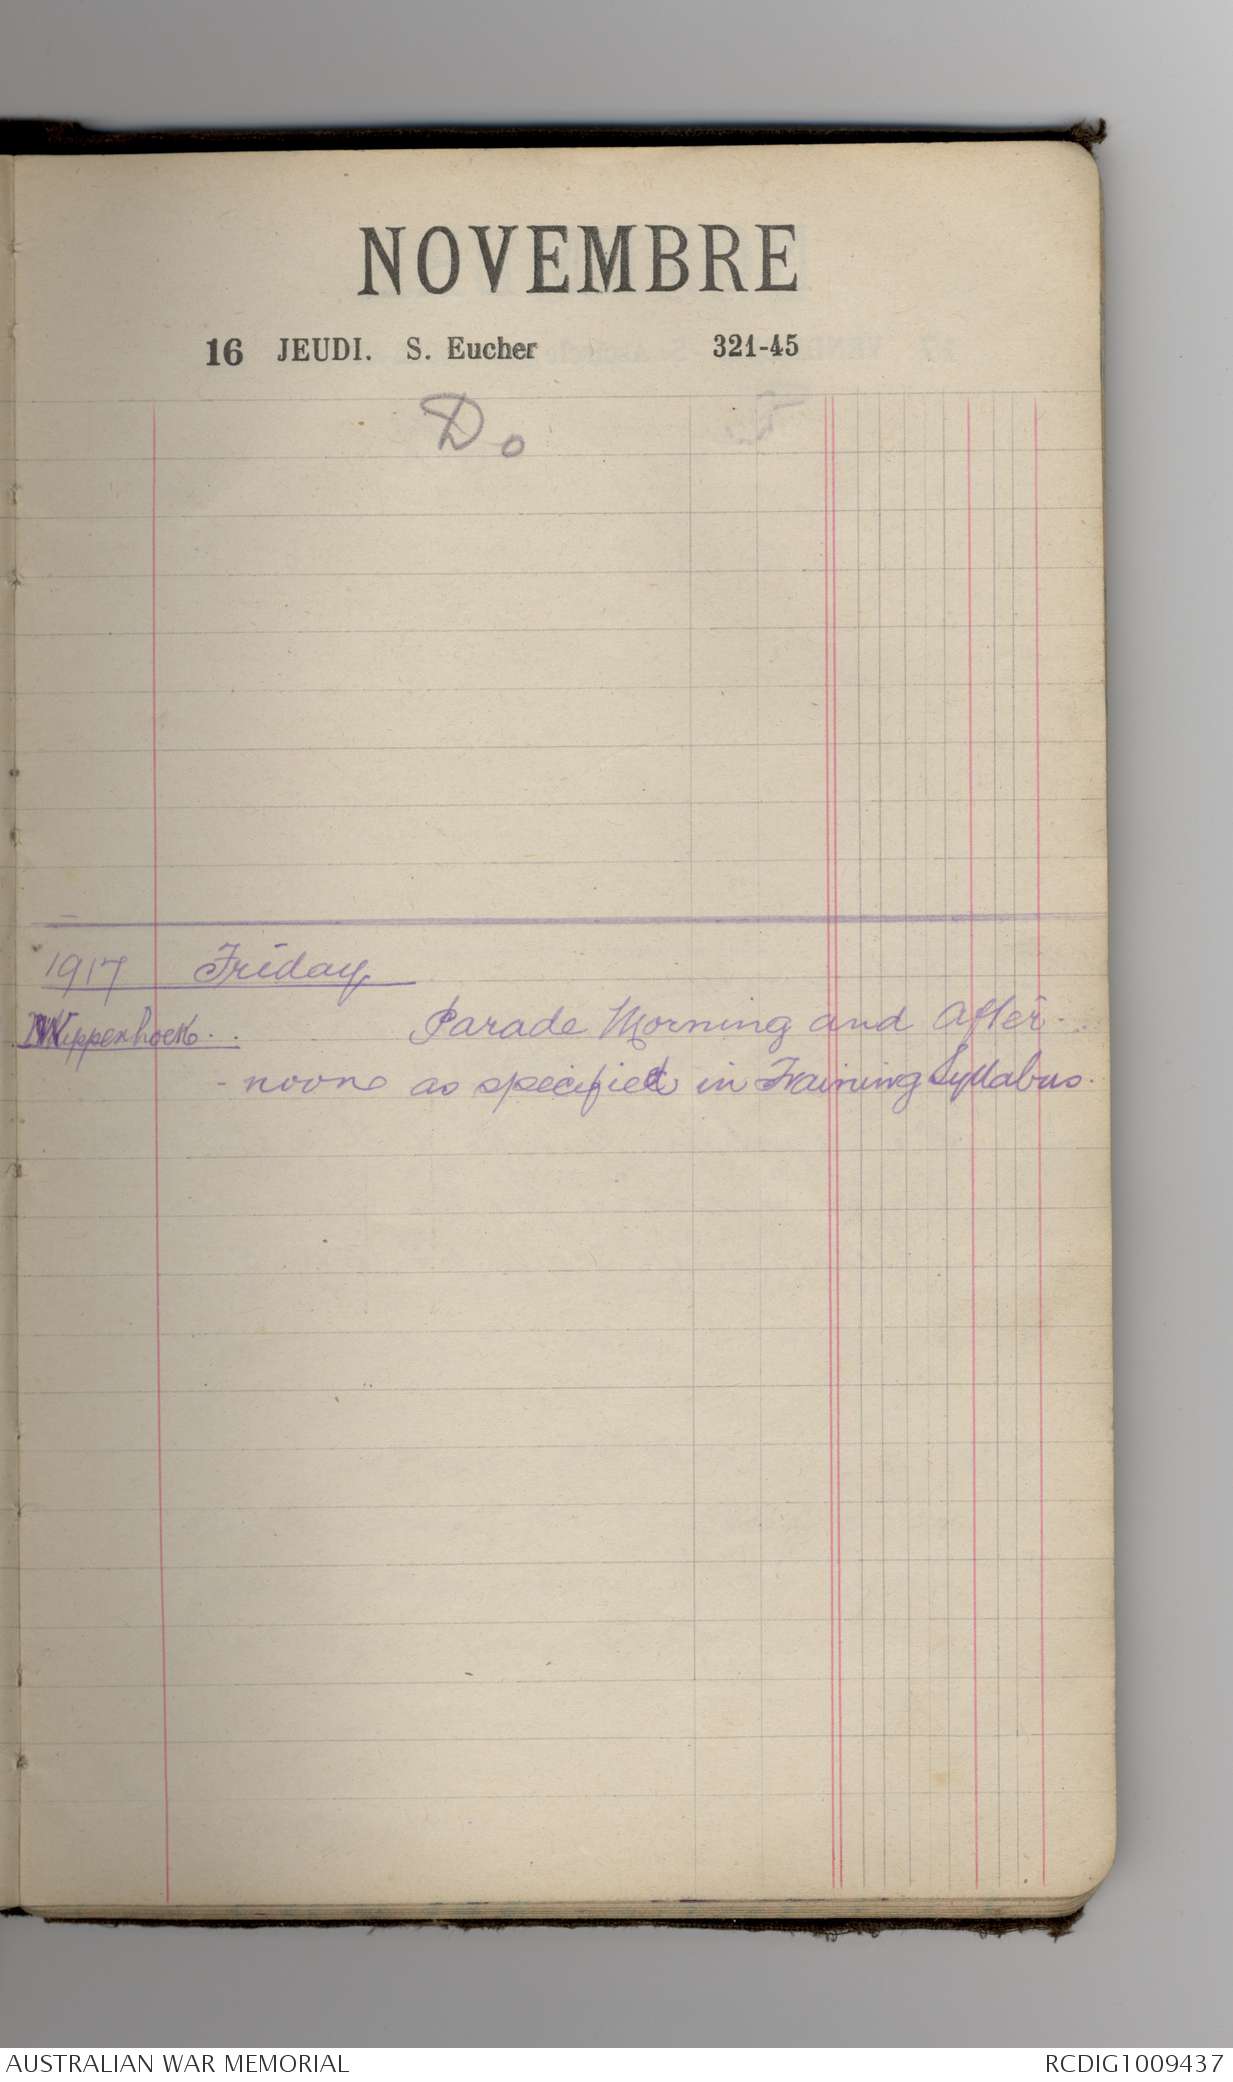 NOVEMBRE
16 JEUDI. S. Eucher 321-45
Do
1917 Friday
Wippenhoek. Parade Morning and After-
-noon as specified in Training Syllabus.
AUSTRALIAN WAR MEMORIAL RCDIG1009437